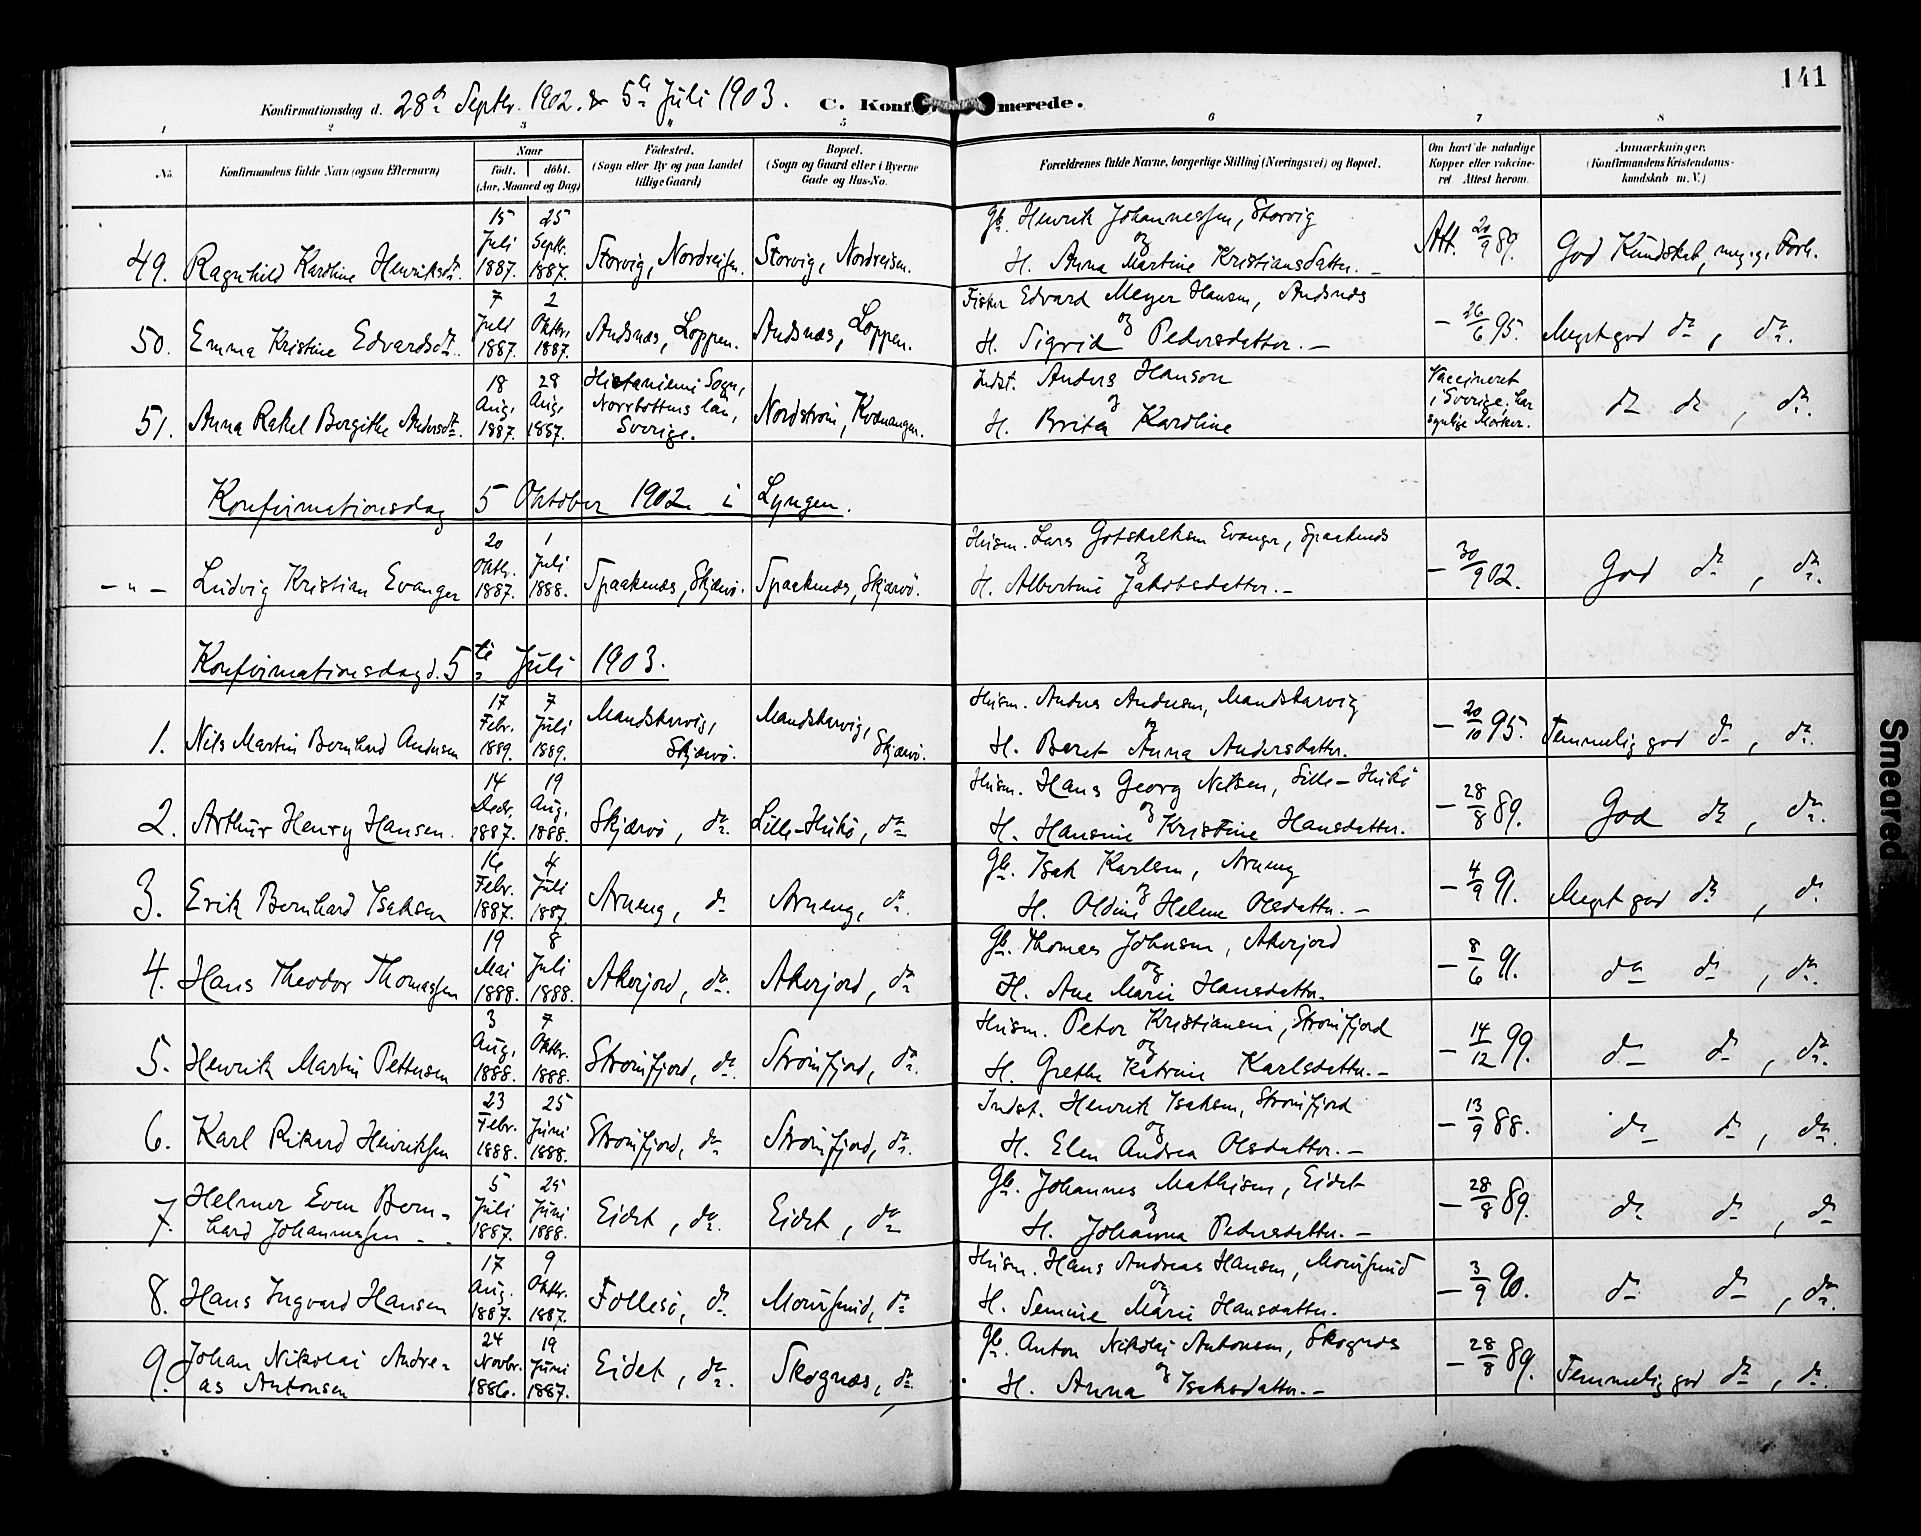 141
Konfirmationsdag d. 28de Septbr. 1902. & 5te Juli 1903. C. Konfirmerede.
1 2 3 4 5 6 7 8
No. Konfirmandens fulde Navn (ogsaa Efternavn) Naar født. døbt. (Aar, Maaned og Dag) Fødested. (Sogn eller By og paa Landet tillige Gaard) Bopæl. (Sogn og Gaard eller i Byerne Gade og Hus-No. Forældrenes fulde Navne, borgerlige Stilling (Næringsvei) og Bopæl. Om havt de naturlige Kopper eller vaccineret. Attest herom. Anmærkninger. (Konfirmandens Kristendomskundskab m. V.)
49. Ragnhild Karoline Henriksdt. 15 Juli 1887. 25 Septbr. 1887. Storvig, Nordreisen. Storvig, Nordreisen. Gb. Henrik Johannessen, Storvig og H. Anna Martine Kristiansdatter. – Att. 20/9 89. God Kundskab, meg. g. Forh.
50. Emma Kristine Edvardsdt. 7 Juli 1887. 2 Oktbr. 1887. Andsnæs, Loppen. Andsnæs, Loppen. Fisker Edvard Meyer Hansen, Andsnæs og H. Sigrid Pedersdatter. – – 26/6 95. Meget god do, do.
51. Anna Rakel Bergithe Andersdt. 18 Aug. 1887. 28 Aug. 1887. Hietaniemi Sogn, Norrbottens län, Sverige. Nordstrøm, Kvænangen. Indst. Anders Hanson og H. Brita Karoline Vaccineret i Sverige. har synlige Mærker. do do, do.
Konfirmationsdag 5 Oktober 1902 i Lyngen.
– " – Ludvig Kristian Evanger 20 Oktbr. 1887. 1 Juli 1888. Spaakenæs, Skjærvø. Spaakenæs, Skjærvø. Husm. Lars Gotskalksen Evanger, Spaakenæs og H. Albertine Jakobsdatter. – – 30/9 02. God do, do.
Konfirmationsdag d. 5te Juli 1903.
1. Nils Martin Bernhard Andersen 17 Febr. 1889. 7 Juli 1889. Mandskarvig, Skjærvø. Mandskarvig, Skjærvø. Husm. Anders Andersen, Mandskarvig og H. Beret Anna Andersdatter. – 20/10 95. Temmelig god do, do.
2. Arthur Henry Hansen. 14 Decbr. 1887. 19 Aug. 1888. Skjærvø, do. Lille-Hukø, do Husm. Hans Georg Nilsen, Lille-Hukø og H. Hansine Kristine Hansdatter. – 28/8 89. God do, do.
3. Erik Bernhard Isaksen 16 Febr. 1887. 4 Juli 1887. Arneng, do Arneng, do. Gb. Isak Karlsen, Arneng og H. Oldine Helene Olsdatter. – – 4/9 91. Meget god do, do
4. Hans Theodor Thomassen 19 Mai 1888. 8 Juli 1888. Akerjord, do. Akerjord, do Gb. Thomas Johnsen, Akerjord og H. Ane Marie Hansdatter. – 8/6 91. do do, do.
5. Henrik Martin Pettersen 3 Aug. 1888. 7 Oktbr. 1888. Strømfjord, do. Strømfjord, do. Husm. Peter Kristiansen, Strømfjord og H. Grethe Katrine Karlsdatter. – – 14/12 99. do do, do.
6. Karl Rikard Henriksen 23 Febr. 1888. 25 Juni 1888. Strømfjord, do Strømfjord, do. Indst. Henrik Isaksen, Strømfjord og H. Elen Andrea Olsdatter. – – 13/9 88. do do, do.
7. Helmer Even Bern= hard Johannessen – 5 Juli 1887. 25 Juni 1888. Eidet, do. Eidet, do Gb. Johannes Mathisen, Eidet og H. Johanna Pedersdatter. – – 28/8 89. do do, do
8. Hans Ingvard Hansen 17 Aug. 1887. 9 Oktbr. 1887. Follesø, do. Maursund, do Husm. Hans Andreas Hansen, Maursund og H. Semine Marie Hansdatter. – 3/9 90. do do, do.
9. Johan Nikolai Andre= as Antonsen 24 Novbr. 1886. 19 Juni 1887. Eidet, do. Skognæs, do. Gb. Anton Nikolai Antonsen, Skognæs og H. Anna Isaksdatter. – – 28/8 89. Temmelig god do, do.
Smeared